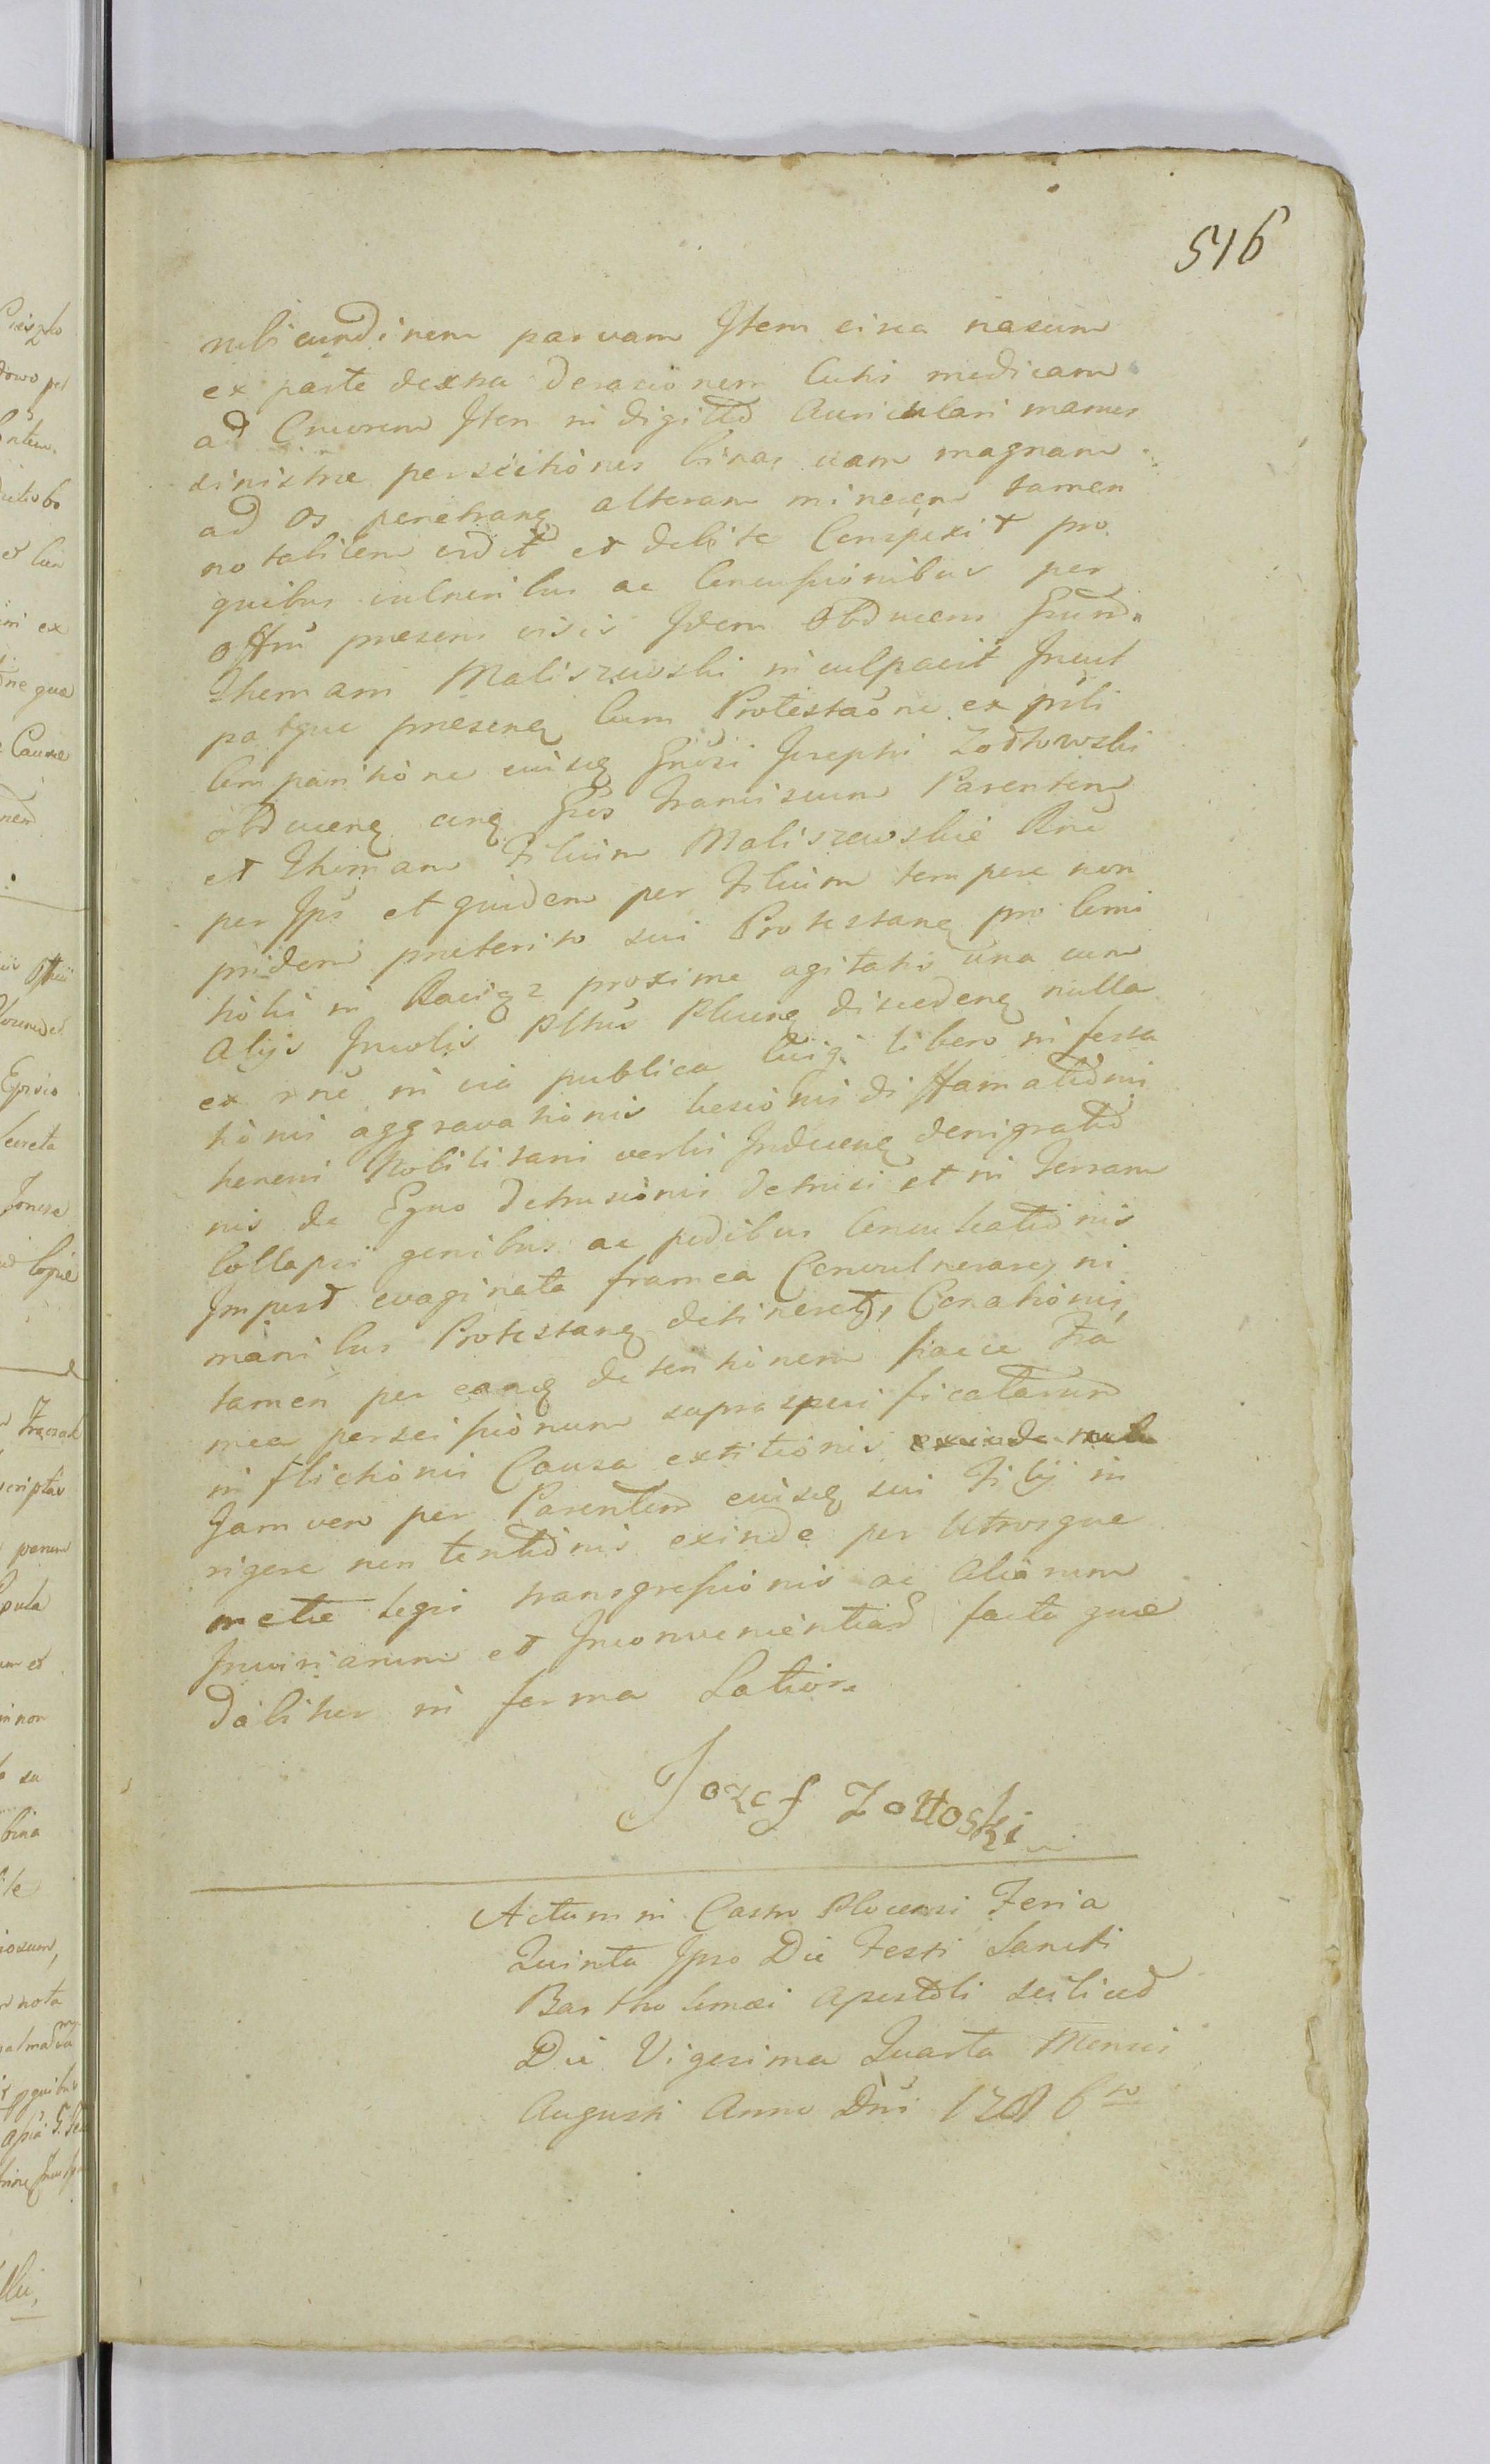 516
rubicundinem parvam Item circa nasum
ex parte dextra derasionem Cutis modicam
ad Cruorem Item in digito Auriculari manus
sinistrae perscitiones binas unam magnam
ad os penetranę alteram minorem tamen
notabilem vidit et debite Conspexit pro
quibus vulneribus ac Concussionibus per
offm̃ praesens visis Idem Obducens Gnrm
Thomam Maliszewski inculpavit Incul
patque praesenę Cum Protestaõne ex psti
Comparitione eiusdę Gnrosi Josephi Zołtowski
obducenę cnę Gsos Franciscum Parentem
et Thomam Filium Maliszewskie Rne
per Ips et quidem per Filium tempore non
pridem praeterito sui Protestanę pro Comi
tiolis in Raciąz proxime agitatis una cum
Alijs Incolis Pltũs Plocenę discedenę nulla
ex rne in via publica Cuiq libero infesta
tionis aggravationis laesionis diffamationis
honori Nobilitari verbis Inducenę denigratio
nis de Equo detrusionis detrusi et in Terram
Collapsi genibus ac pedibus Conculcationis
Impost evaginata framea Convulnerarej ni
manibus Protestanę detineretr, Conationis,
tamen per eanę detentionem hacce Fra
mea perscissionum supraspecificatarum
inflictionis Causa extitionis
Jam vero per Parentem eiusdę sui Filij in
rigore non tentionis exinde per Utrosque
metae legis transgressionis ac Aliarum
Iniuriarum et Inconvenientiarũ facta quae
daliter in forma Latiori
Jozef Zołtoski
Actum in Castro Plocensi Feria
Quinta Ipso Die Festi Sancti
Bartholomaei Apostoli scilicet
Die Vigesima Quarta Mensis
Augusti Anno Dni 1786to